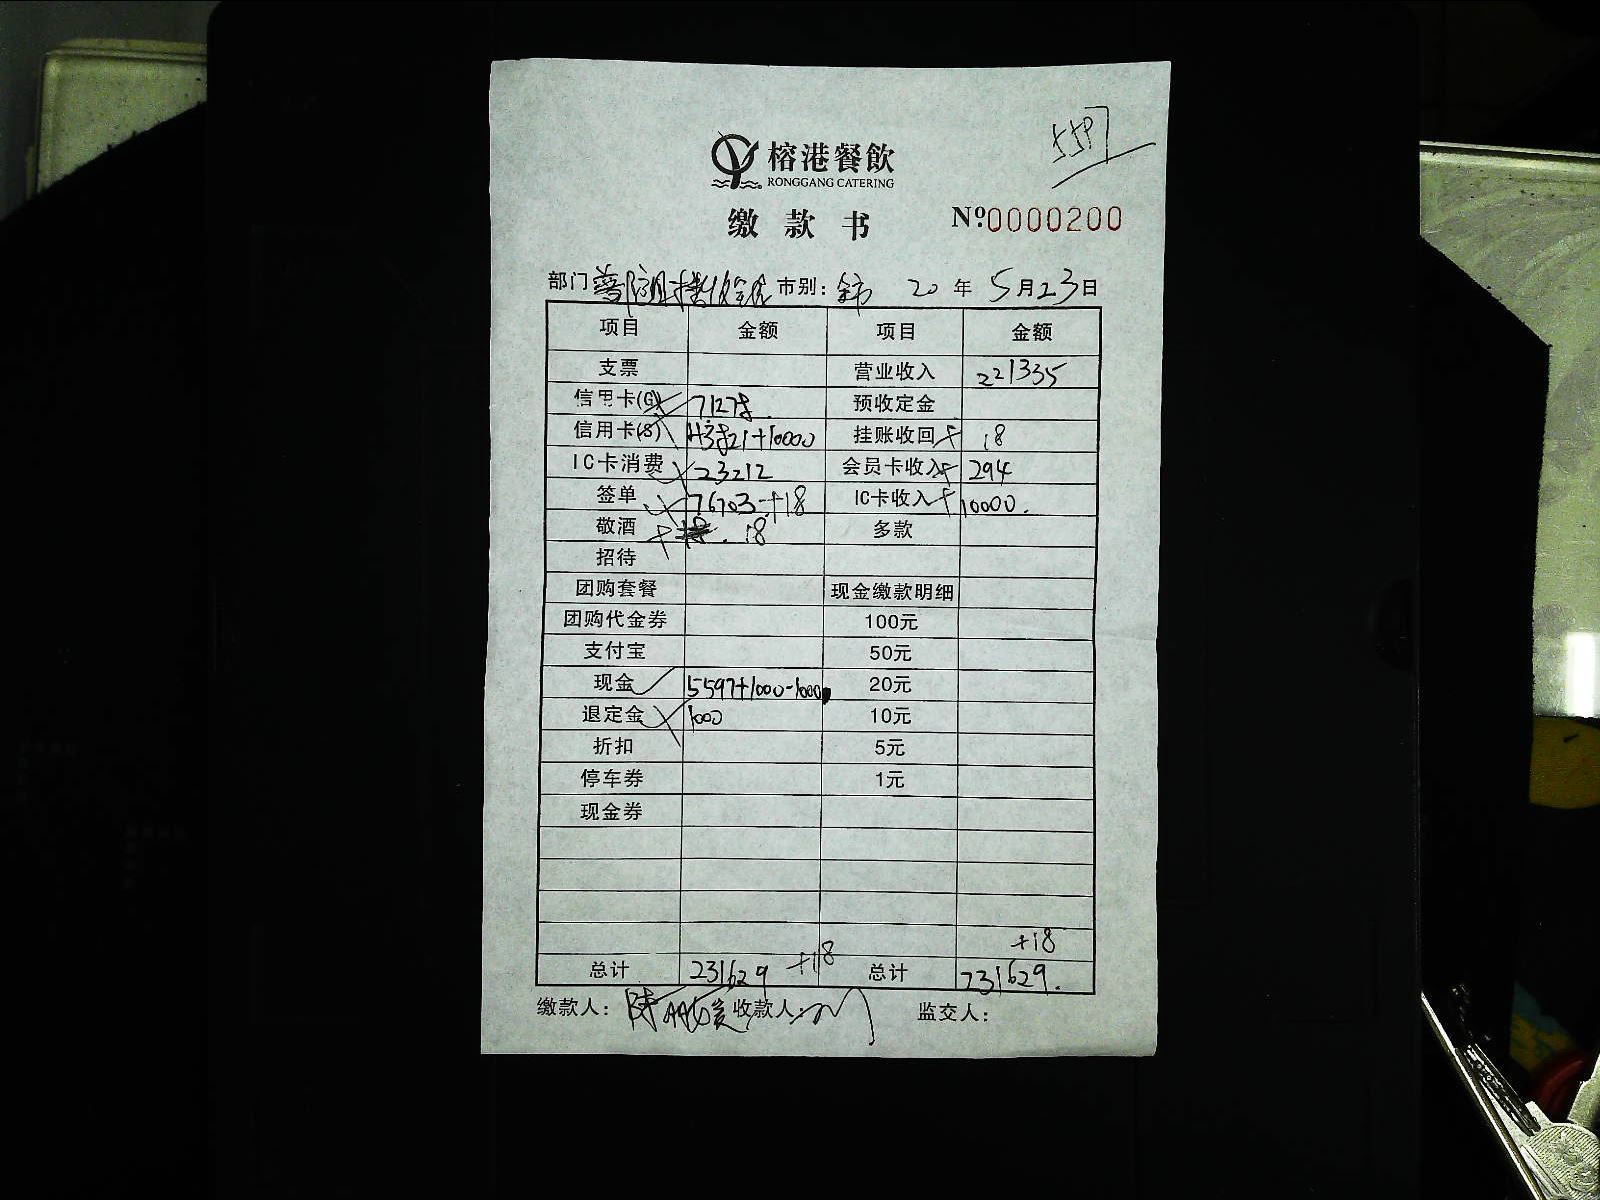 5597
榕港餐飲
RONGGANG CATERING
缴款书 Nº0000200
部门 市别: 全市 20 年 5 月 23 日
项目 金额 项目 金额
支票 营业收入 221335
信用卡(G) 71278.
信用卡(S) 43821+10000
预收定金
挂账收回 18
IC卡消费 23212 会员卡收入 294
签单 76703+18 IC卡收入 10000.
敬酒 18 多款
招待
团购套餐 现金缴款明细
团购代金券 100元
支付宝 50元
现金 5597+1000-1000 20元
退定金 1000 10元
折扣 5元
停车券 1元
现金券
+18
总计 231629 +18 总计 231629.
缴款人: 陈 收款人: 监交人: